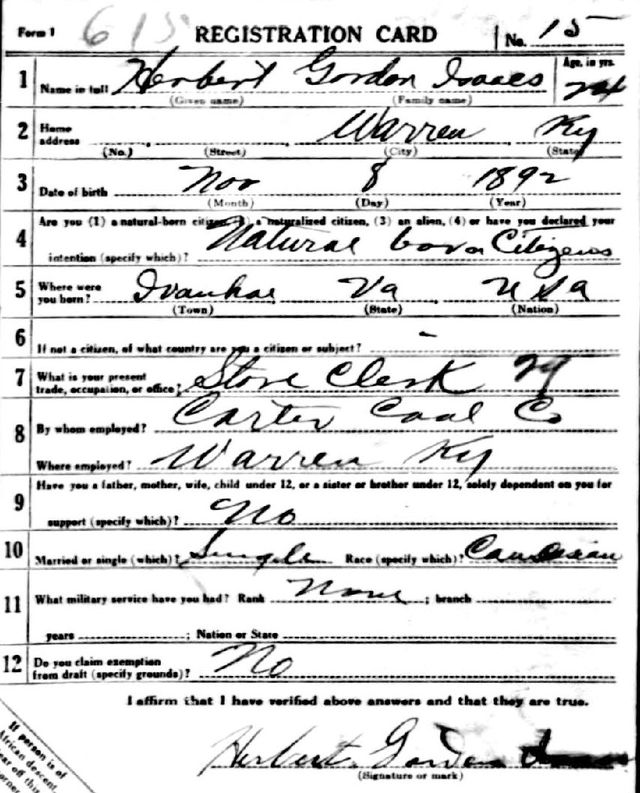 Form 1 615 REGISTRATION CARD No. 15
1 Name in full Herbert Gordon Isaacs Age, in yrs. 24
(Given name) (Family name)
2 Home address Warren Ky
(No.) (Street) (City) (State)
3 Date of birth Nov 8 1892
(Month) (Day) (Year)
4 Are you (1) a natural-born citizen, (2) a naturalized citizen, (3) an alien, (4) or have you declared your
intention (specify which)? Natural born Citizens
5 Where were you born? Ivanhoe Va USA
(Town) (State) (Nation)
6 If not a citizen, of what country are you a citizen or subject? -
7 What is your present trade, occupation, or office? Store Clerk 29
8 By whom employed? Carter Coal Co
Where employed? Warren Ky
9 Have you a father, mother, wife, child under 12, or a sister or brother under 12, solely dependent on you for
support (specify which)? No
10 Married or single (which)? Single Race (specify which)? Caucasian
11 What military service have you had? Rank None ; branch
years ; Nation or State
12 Do you claim exemption from draft (specify grounds)? No
I affirm that I have verified above answers and that they are true.
Herbert Gordon
(Signature or mark)
If person is of
African descent,
tear off this
corner